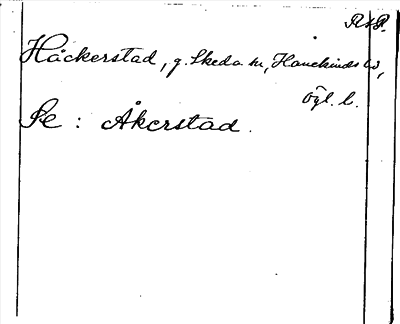 R.s.R.
Håckerstad, g. Skeda sn, Hanekinds hd,
Ögl. l.
Se: Åkerstad.